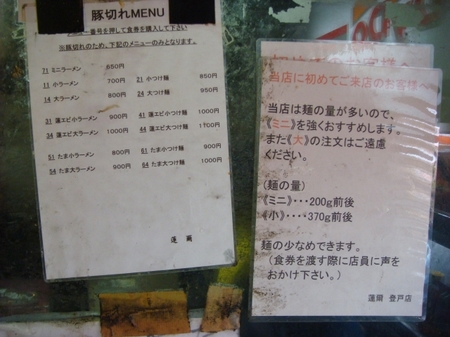 豚切れMENU
番号を押して食券を購入して下さい
※豚切れのため、下記のメニューのみとなります。
71 ミニラーメン 650円
11 小ラーメン 700円 21 小つけ麺 850円
14 大ラーメン 800円 24 大つけ麺 950円
31 蓮エビ小ラーメン 900円 41 蓮エビ小つけ麺
34 蓮エビ大ラーメン 1000円 44 蓮エビ大つけ麺
51 たま小ラーメン 800円 61 たま小つけ麺 900円
54 たま大ラーメン 900円 64 たま大つけ麺 1000円
蓮爾
当店に初めてご来店のお客様へ
当店は麺の量が多いので、
《ミニ》を強くおすすめします。
また《大》の注文はご遠慮
ください。
(麺の量)
《ミニ》・・・200g前後
《小》・・・・370g前後
麺の少なめできます。
(食券を渡す際に店員に声を
おかけ下さい。)
蓮爾 登戸店